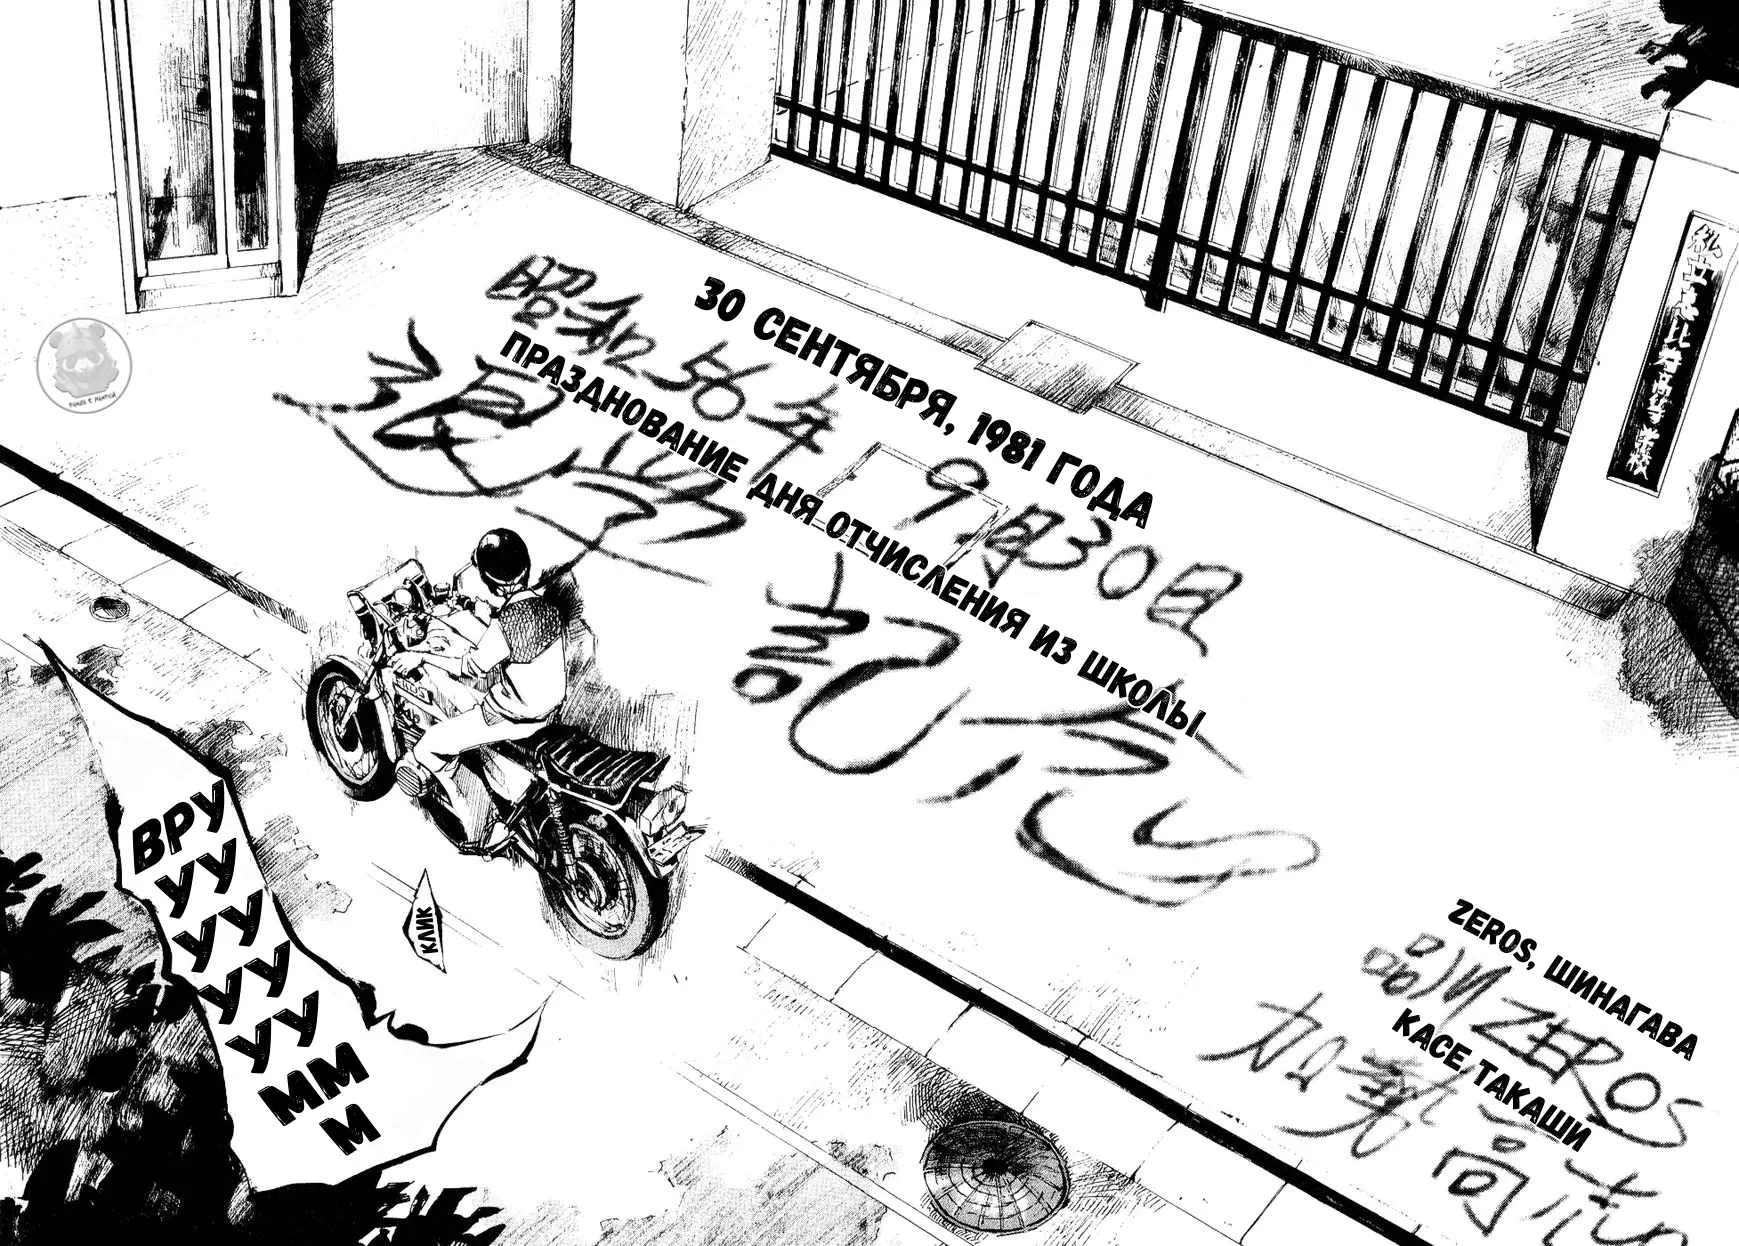 30 СЕНТЯБРЯ, 1981 ГОДА
ПРАЗДНОВАНИЕ ДНЯ ОТЧИСЛЕНИЯ ИЗ ШКОЛЫ
昭和56年9月30日
退学
記念
私立恵比寿高等学校
ВРУ
УУ
УУ
УУ
УУ
ММ
М
КЛИК
ZEROS, ШИНАГАВА
КАСЕ ТАКАШИ
品川ZEROS
加勢高志